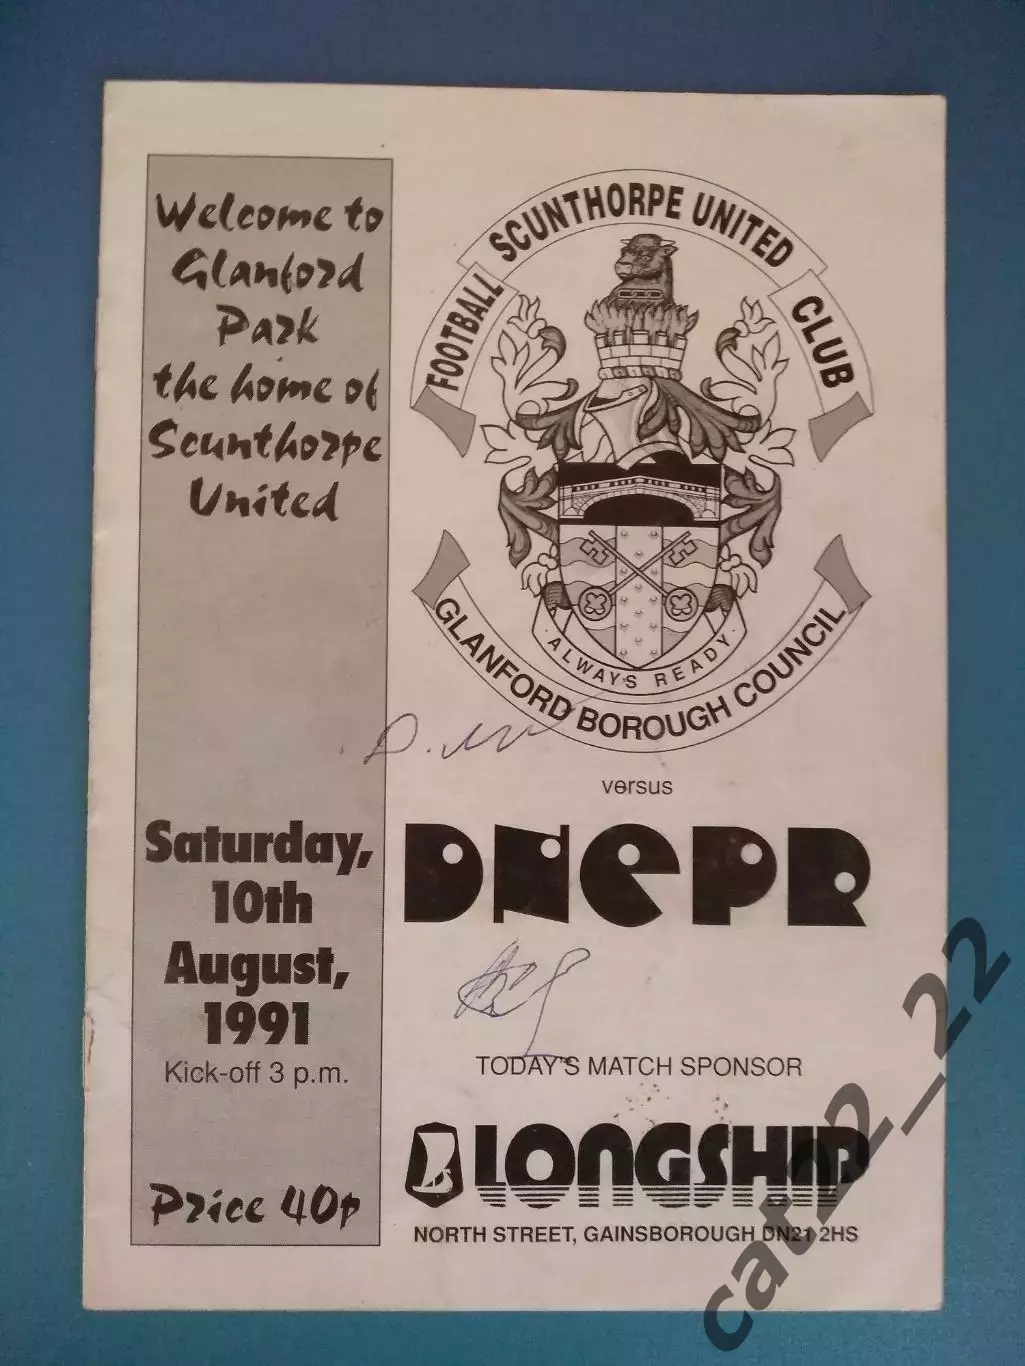 Welcome to
Glanford
Park
the home of
Scunthorpe
United
FOOTBALL SCUNTHORPE UNITED CLUB
ALWAYS READY
GLANFORD BOROUGH COUNCIL
versus
DNEPR
Saturday,
10th
August,
1991
Kick-off 3 p.m.
Price 40p
TODAY'S MATCH SPONSOR
LONGSHIP
NORTH STREET, GAINSBOROUGH DN21 2HS
cat22_22